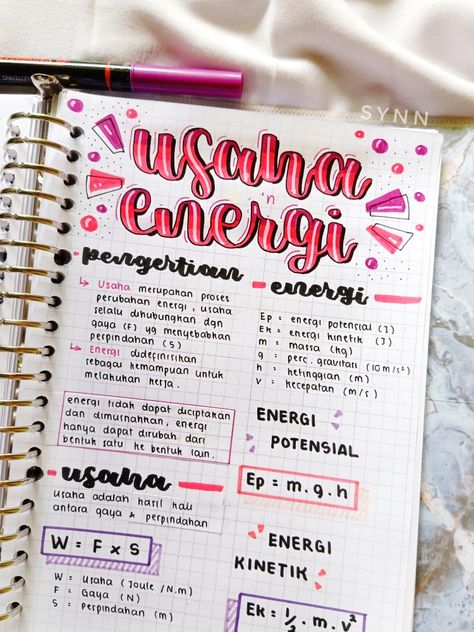 SYNN
usaha
n
energi
pengertian
↳ Usaha merupakan proses
perubahan energi, usaha
selalu dihubungkan dgn
gaya (F) yg menyebabkan
perpindahan (S)
↳ Energi didefinisikan
sebagai kemampuan untuk
melakukan kerja.
energi tidak dapat diciptakan
dan dimusnahkan, energi
hanya dapat dirubah dari
bentuk satu ke bentuk lain.
usaha
usaha adalah hasil kali
antara gaya & perpindahan
W = F x S
W = Usaha (Joule / N.m)
F = Gaya (N)
S = perpindahan (m)
energi
Ep = energi potensial (J)
Ek = energi kinetik (J)
m = massa (kg)
g = perc. gravitasi (10 m/s²)
h = ketinggian (m)
v = kecepatan (m/s)
ENERGI
POTENSIAL
Ep = m.g.h
ENERGI
KINETIK
Ek = 1/2 . m . v²